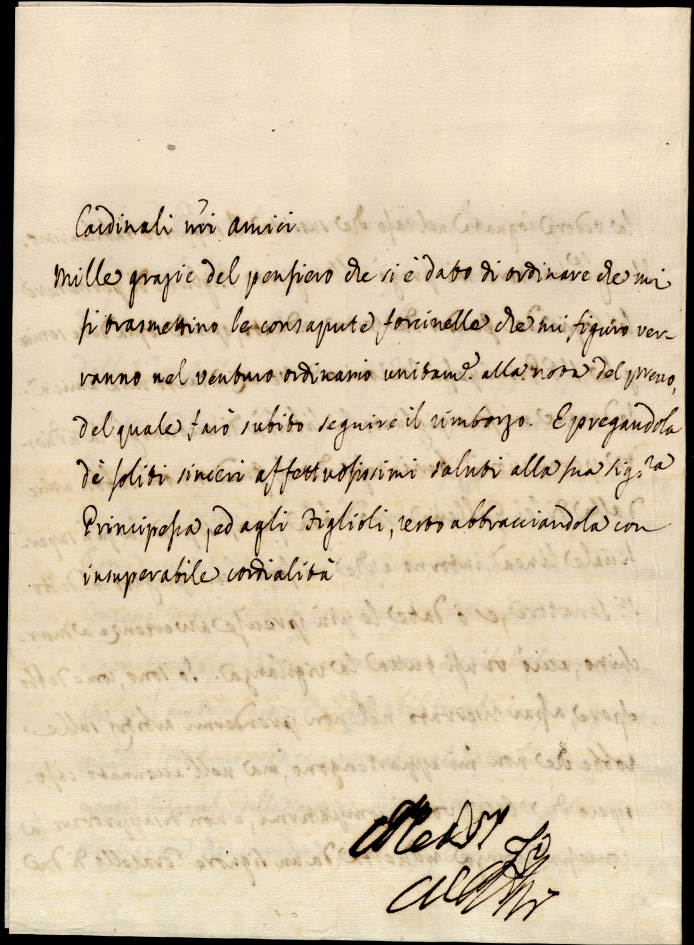 Cardinali nri Amici
Mille grazie del pensiero che si è dato di ordinare che mi
si trasmettino le consapute forcinelle che mi figuro ver-
ranno nel venturo ordinario unitam.e alla nota del prezzo,
del quale farò subito seguire il rimborzo. E pregandola
dè soliti sinceri affettuosissimi saluti alla sua sig.ra
Principessa, ed agli Figlioli, resto abbracciandola con
insuperabile cordialità